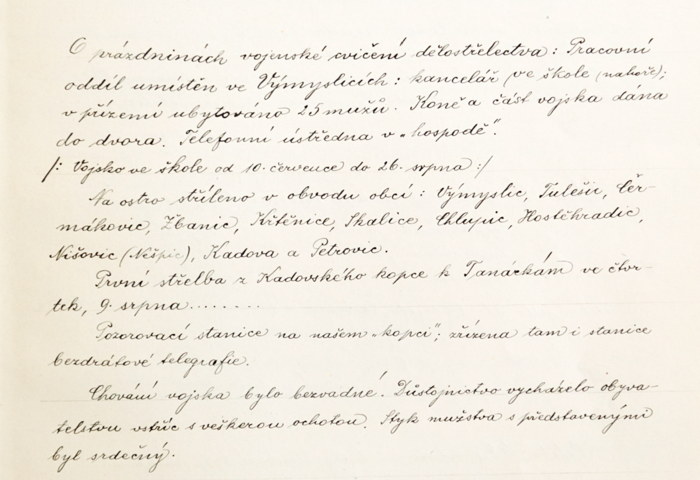 O prázdninách vojenské cvičení dělostřelectva: Pracovní
oddíl umístěn ve Výmyslicích: kancelář ve škole (nahoře);
v přízemí ubytováno 25 mužů. Koně a část vojska dána
do dvora. Telefonní ústředna v „hospodě".
/: Vojsko ve škole od 10. července do 26. srpna :/
Na ostro stříleno v obvodu obcí: Výmyslic, Tulešic, Čer-
mákovic, Žbanic, Křtěnice, Skalice, Chlupic, Hostěhradic,
Nišovic (Nešpic), Kadova a Petrovic.
První střelba z Kadovského kopce k Tanárkám ve čtvr-
tek, 9. srpna........
Pozorovací stanice na našem „kopci"; zřízena tam i stanice
bezdrátové telegrafie.
Chování vojska bylo bezvadné. Důstojnictvo vycházelo obyva-
telstvu vstříc s veškerou ochotou. Styk mužstva s představenými
byl srdečný.